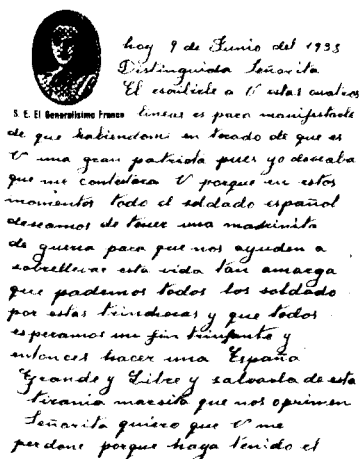 hoy 9 de Junio del 1938
Distinguida Señorita
El escribirle a V estas cuatros
S. E. El Generalísimo Franco
lineas es para manifestarle
de que habiendome en terado de que es
V una gran patriota pues yo deseaba
que me contestara V porque en estos
momentos todo el soldado español
deseamos de tener una madrinita
de guerra para que nos ayuden a
sobrellevar esta vida tan amarga
que pademos todos los soldado
por estas trincheras y que todos
esperamos un fin triunfante y
entonces hacer una España
Grande y Libre y salvarla de esta
tirania marsita que nos oprimen
Señorita quiero que V me
perdone porque haya tenido el